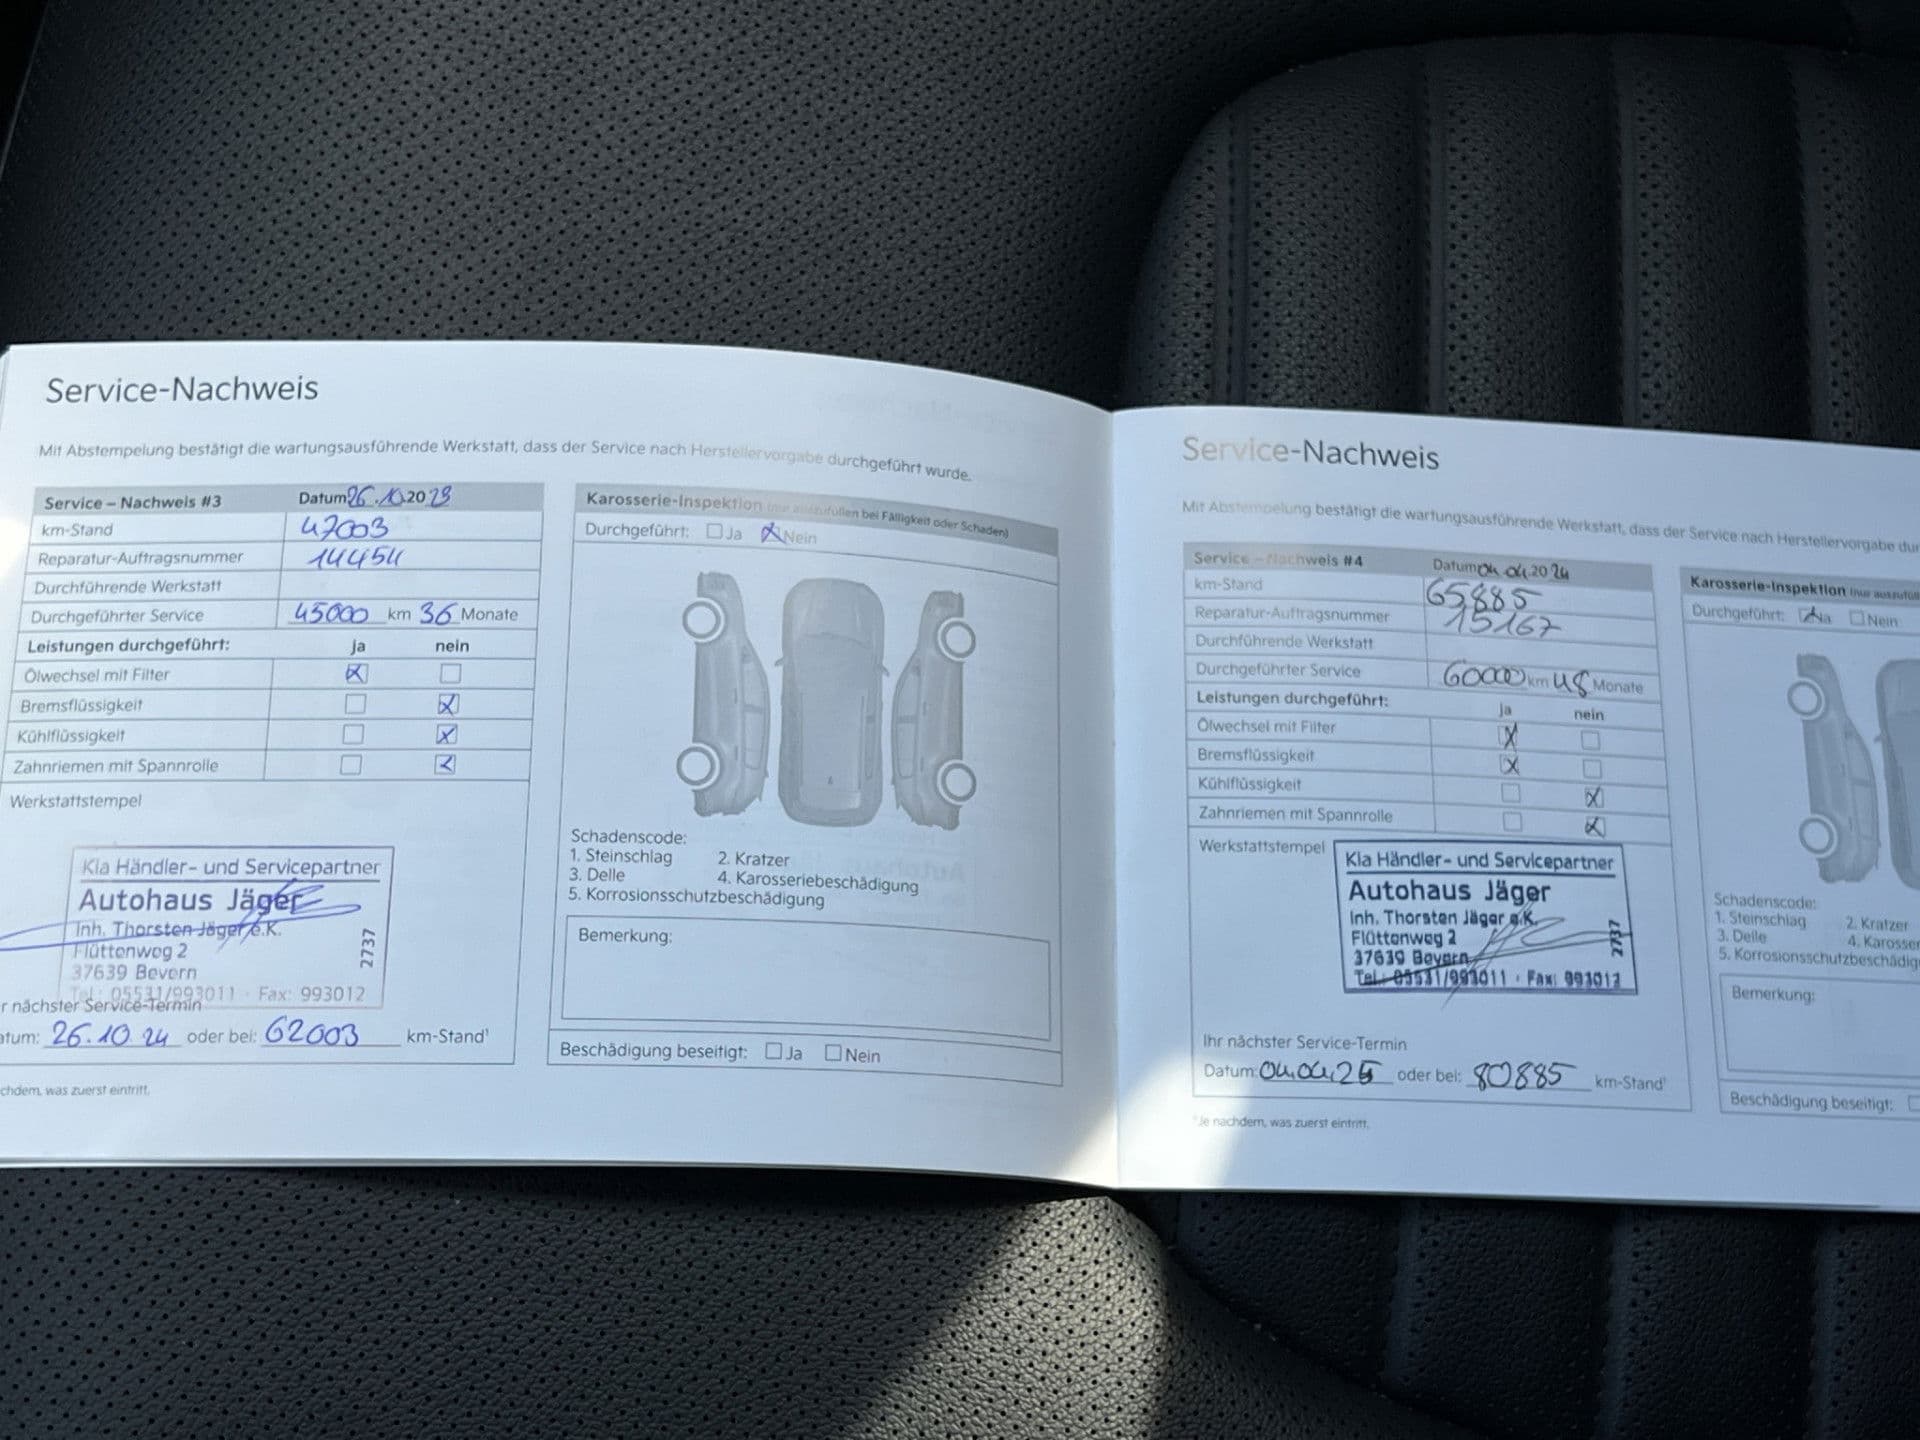 Service-Nachweis
Mit Abstempelung bestätigt die wartungsausführende Werkstatt, dass der Service nach Herstellervorgabe durchgeführt wurde.
Service – Nachweis #3 Datum 26.10.2023
km-Stand 47003
Reparatur-Auftragsnummer 14454
Durchführende Werkstatt
Durchgeführter Service 45000 km 36 Monate
Leistungen durchgeführt: ja nein
Ölwechsel mit Filter
Bremsflüssigkeit
Kühlflüssigkeit
Zahnriemen mit Spannrolle
Werkstattstempel
Kia Händler- und Servicepartner
Autohaus Jäger
Inh. Thorsten Jäger e.K.
Flüttenweg 2
37639 Bevern
Tel.: 05531/993011 · Fax: 993012
2737
r nächster Service-Termin
atum: 26.10.24 oder bei: 62003 km-Stand¹
chdem, was zuerst eintritt.
Karosserie-Inspektion (nur auszufüllen bei Fälligkeit oder Schaden)
Durchgeführt: Ja Nein
Schadenscode:
1. Steinschlag 2. Kratzer
3. Delle 4. Karosseriebeschädigung
5. Korrosionsschutzbeschädigung
Bemerkung:
Beschädigung beseitigt: Ja Nein
Service-Nachweis
Mit Abstempelung bestätigt die wartungsausführende Werkstatt, dass der Service nach Herstellervorgabe dur
Service – Nachweis #4 Datum 04.04.2024
km-Stand 65885
Reparatur-Auftragsnummer 15167
Durchführende Werkstatt
Durchgeführter Service 60000 km 48 Monate
Leistungen durchgeführt: ja nein
Ölwechsel mit Filter
Bremsflüssigkeit
Kühlflüssigkeit
Zahnriemen mit Spannrolle
Werkstattstempel
Kia Händler- und Servicepartner
Autohaus Jäger
Inh. Thorsten Jäger e.K.
Flüttenweg 2
37639 Bevern
Tel.: 05531/993011 · Fax: 993012
2737
Ihr nächster Service-Termin
Datum: 04.04.25 oder bei: 80885 km-Stand¹
¹Je nachdem, was zuerst eintritt.
Karosserie-Inspektion (nur auszufüll
Durchgeführt: Ja Nein
Schadenscode:
1. Steinschlag 2. Kratzer
3. Delle 4. Karosser
5. Korrosionsschutzbeschädig
Bemerkung:
Beschädigung beseitigt: